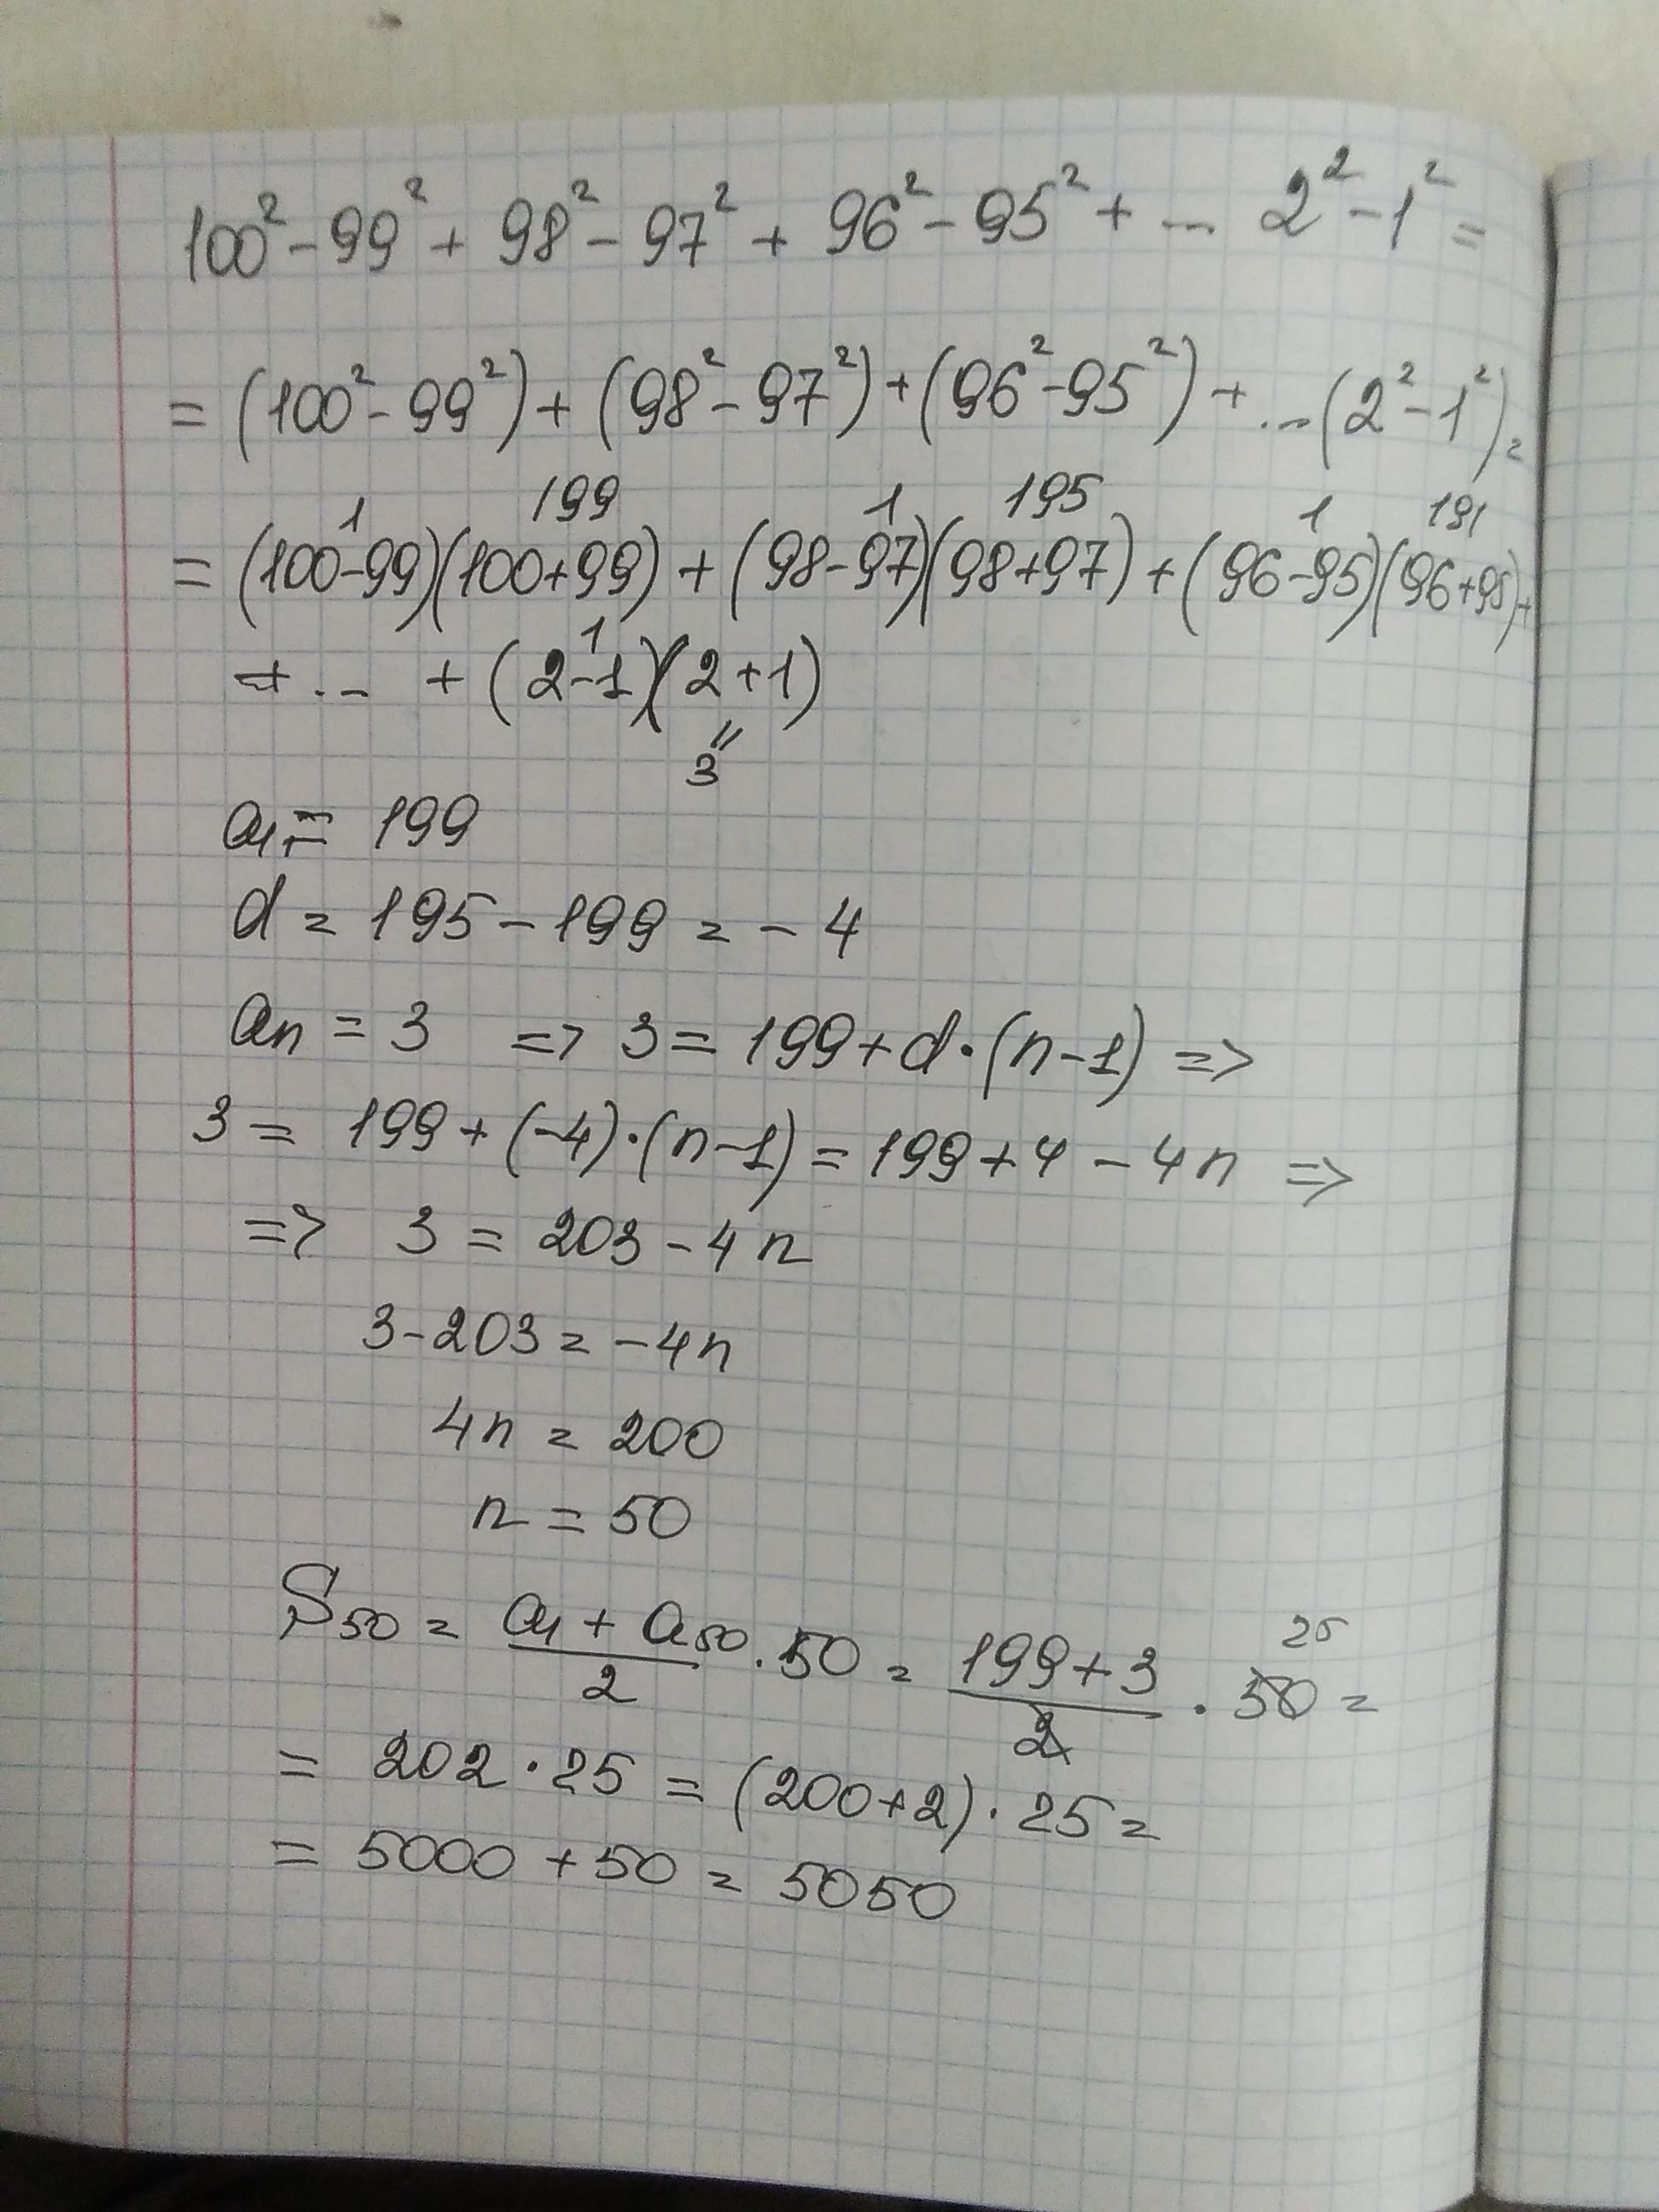 100² - 99² + 98² - 97² + 96² - 95² + ... 2² - 1² =
= (100² - 99²) + (98² - 97²) + (96² - 95²) + ... (2² - 1²) =
1 199 1 195 1 191
= (100-99)(100+99) + (98-97)(98+97) + (96-95)(96+95) +
1
+ ... + (2-1)(2+1)
"
3
a₁ = 199
d = 195 - 199 = - 4
aₙ = 3 => 3 = 199 + d · (n-1) =>
3 = 199 + (-4) · (n-1) = 199 + 4 - 4n =>
=> 3 = 203 - 4n
3 - 203 = - 4n
4n = 200
n = 50
S₅₀ = (a₁ + a₅₀)/2 · 50 = (199 + 3)/2 · 50 = 25
= 202 · 25 = (200+2) · 25 =
= 5000 + 50 = 5050